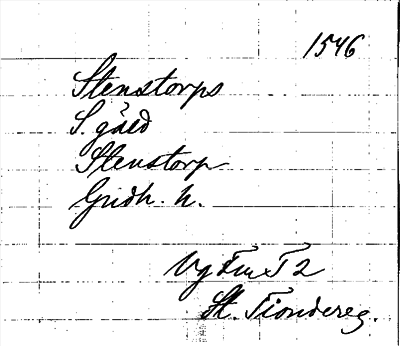 1546
Stenstorps
S. gård
Stenstorp
Gudh. h.
Vg Fm T 2
St. Tiondereg.